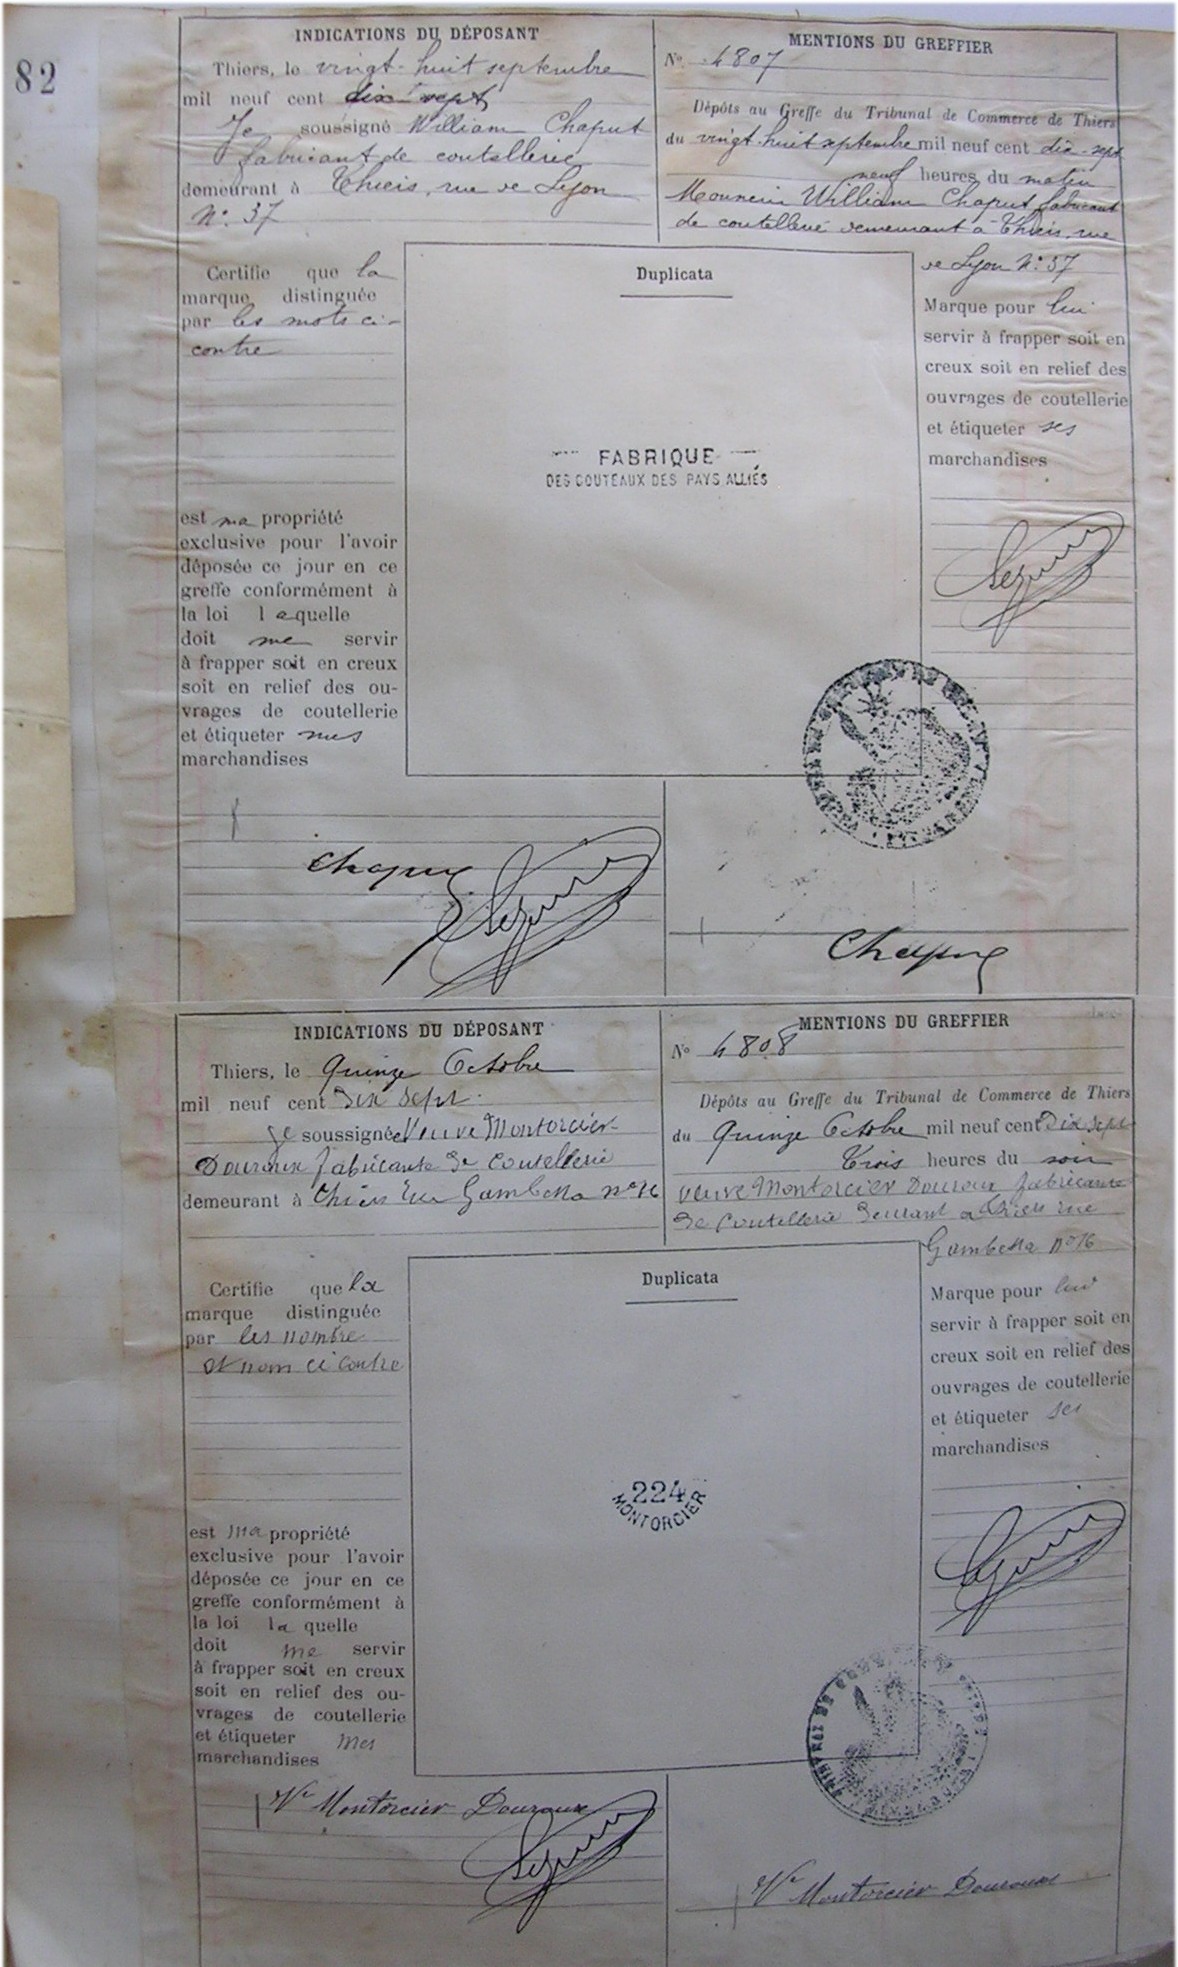 82
INDICATIONS DU DÉPOSANT
Thiers, le vingt-huit septembre
mil neuf cent dix-sept
Je soussigné William Chaput
fabricant de coutellerie
demeurant à Thiers, rue de Lyon
N° 37
MENTIONS DU GREFFIER
N° 4807
Dépôts au Greffe du Tribunal de Commerce de Thiers
du vingt-huit septembre mil neuf cent dix-sept
neuf heures du matin
Monsieur William Chaput fabricant
de coutellerie demeurant à Thiers, rue
de Lyon N° 37
Certifie que la
marque distinguée
par les mots ci-
contre
est ma propriété
exclusive pour l'avoir
déposée ce jour en ce
greffe conformément à
la loi laquelle
doit me servir
à frapper soit en creux
soit en relief des ou-
vrages de coutellerie
et étiqueter mes
marchandises
Duplicata
FABRIQUE
DES COUTEAUX DES PAYS ALLIÉS
Marque pour lui
servir à frapper soit en
creux soit en relief des
ouvrages de coutellerie
et étiqueter ses
marchandises
Chaput
Chaput
INDICATIONS DU DÉPOSANT
Thiers, le Quinze Octobre
mil neuf cent Dix Sept.
Je soussignée Veuve Montorcier-
Douroux fabricante de Coutellerie
demeurant à Thiers rue Gambetta n° 16
MENTIONS DU GREFFIER
N° 4808
Dépôts au Greffe du Tribunal de Commerce de Thiers
du Quinze Octobre mil neuf cent Dix Sept
Trois heures du soir
Veuve Montorcier Douroux fabricante
de Coutellerie à Thiers rue
Gambetta n° 16
Certifie que la
marque distinguée
par les nombre
et nom ci contre
est ma propriété
exclusive pour l'avoir
déposée ce jour en ce
greffe conformément à
la loi la quelle
doit me servir
à frapper soit en creux
soit en relief des ou-
vrages de coutellerie
et étiqueter mes
marchandises
Duplicata
224
MONTORCIER
Marque pour lui
servir à frapper soit en
creux soit en relief des
ouvrages de coutellerie
et étiqueter ses
marchandises
Ve Montorcier Douroux
Ve Montorcier Douroux